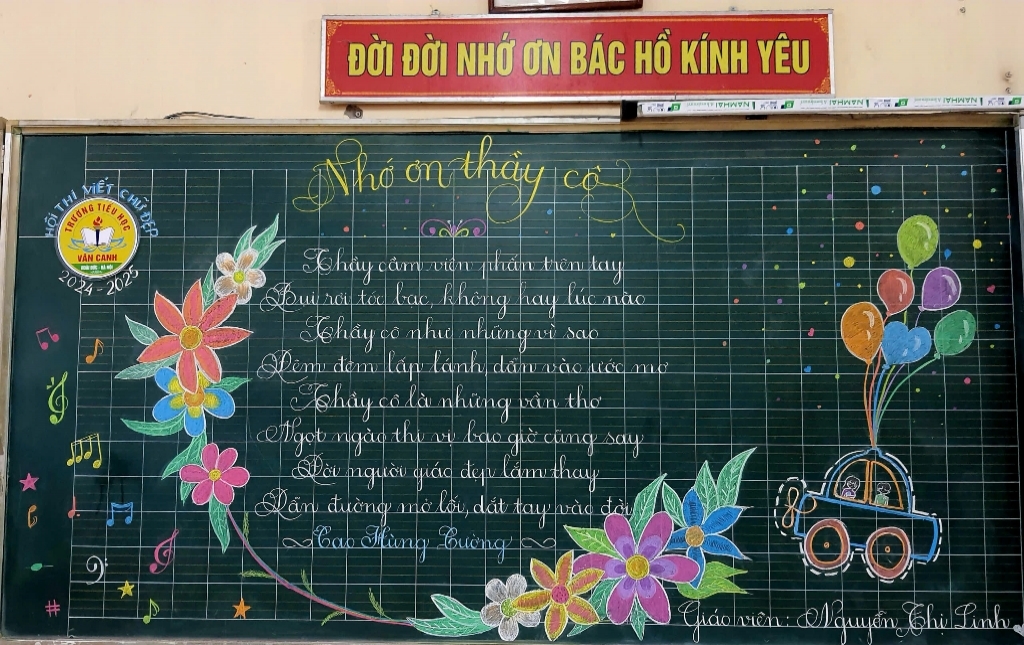 ĐỜI ĐỜI NHỚ ƠN BÁC HỒ KÍNH YÊU
NAMHAI
HỘI THI VIẾT CHỮ ĐẸP
TRƯỜNG TIỂU HỌC
VÂN CANH
HOÀI ĐỨC - HÀ NỘI
2024 - 2025
Nhớ ơn thầy cô
Thầy cầm viên phấn trên tay
Bụi rơi tóc bạc, không hay lúc nào
Thầy cô như những vì sao
Đêm đêm lấp lánh, dẫn vào ước mơ
Thầy cô là những vần thơ
Ngọt ngào thi vị bao giờ cũng say
Đời người giáo đẹp lắm thay
Dẫn đường mở lối, dắt tay vào đời
Cao Hùng Cường
Giáo viên: Nguyễn Thị Linh